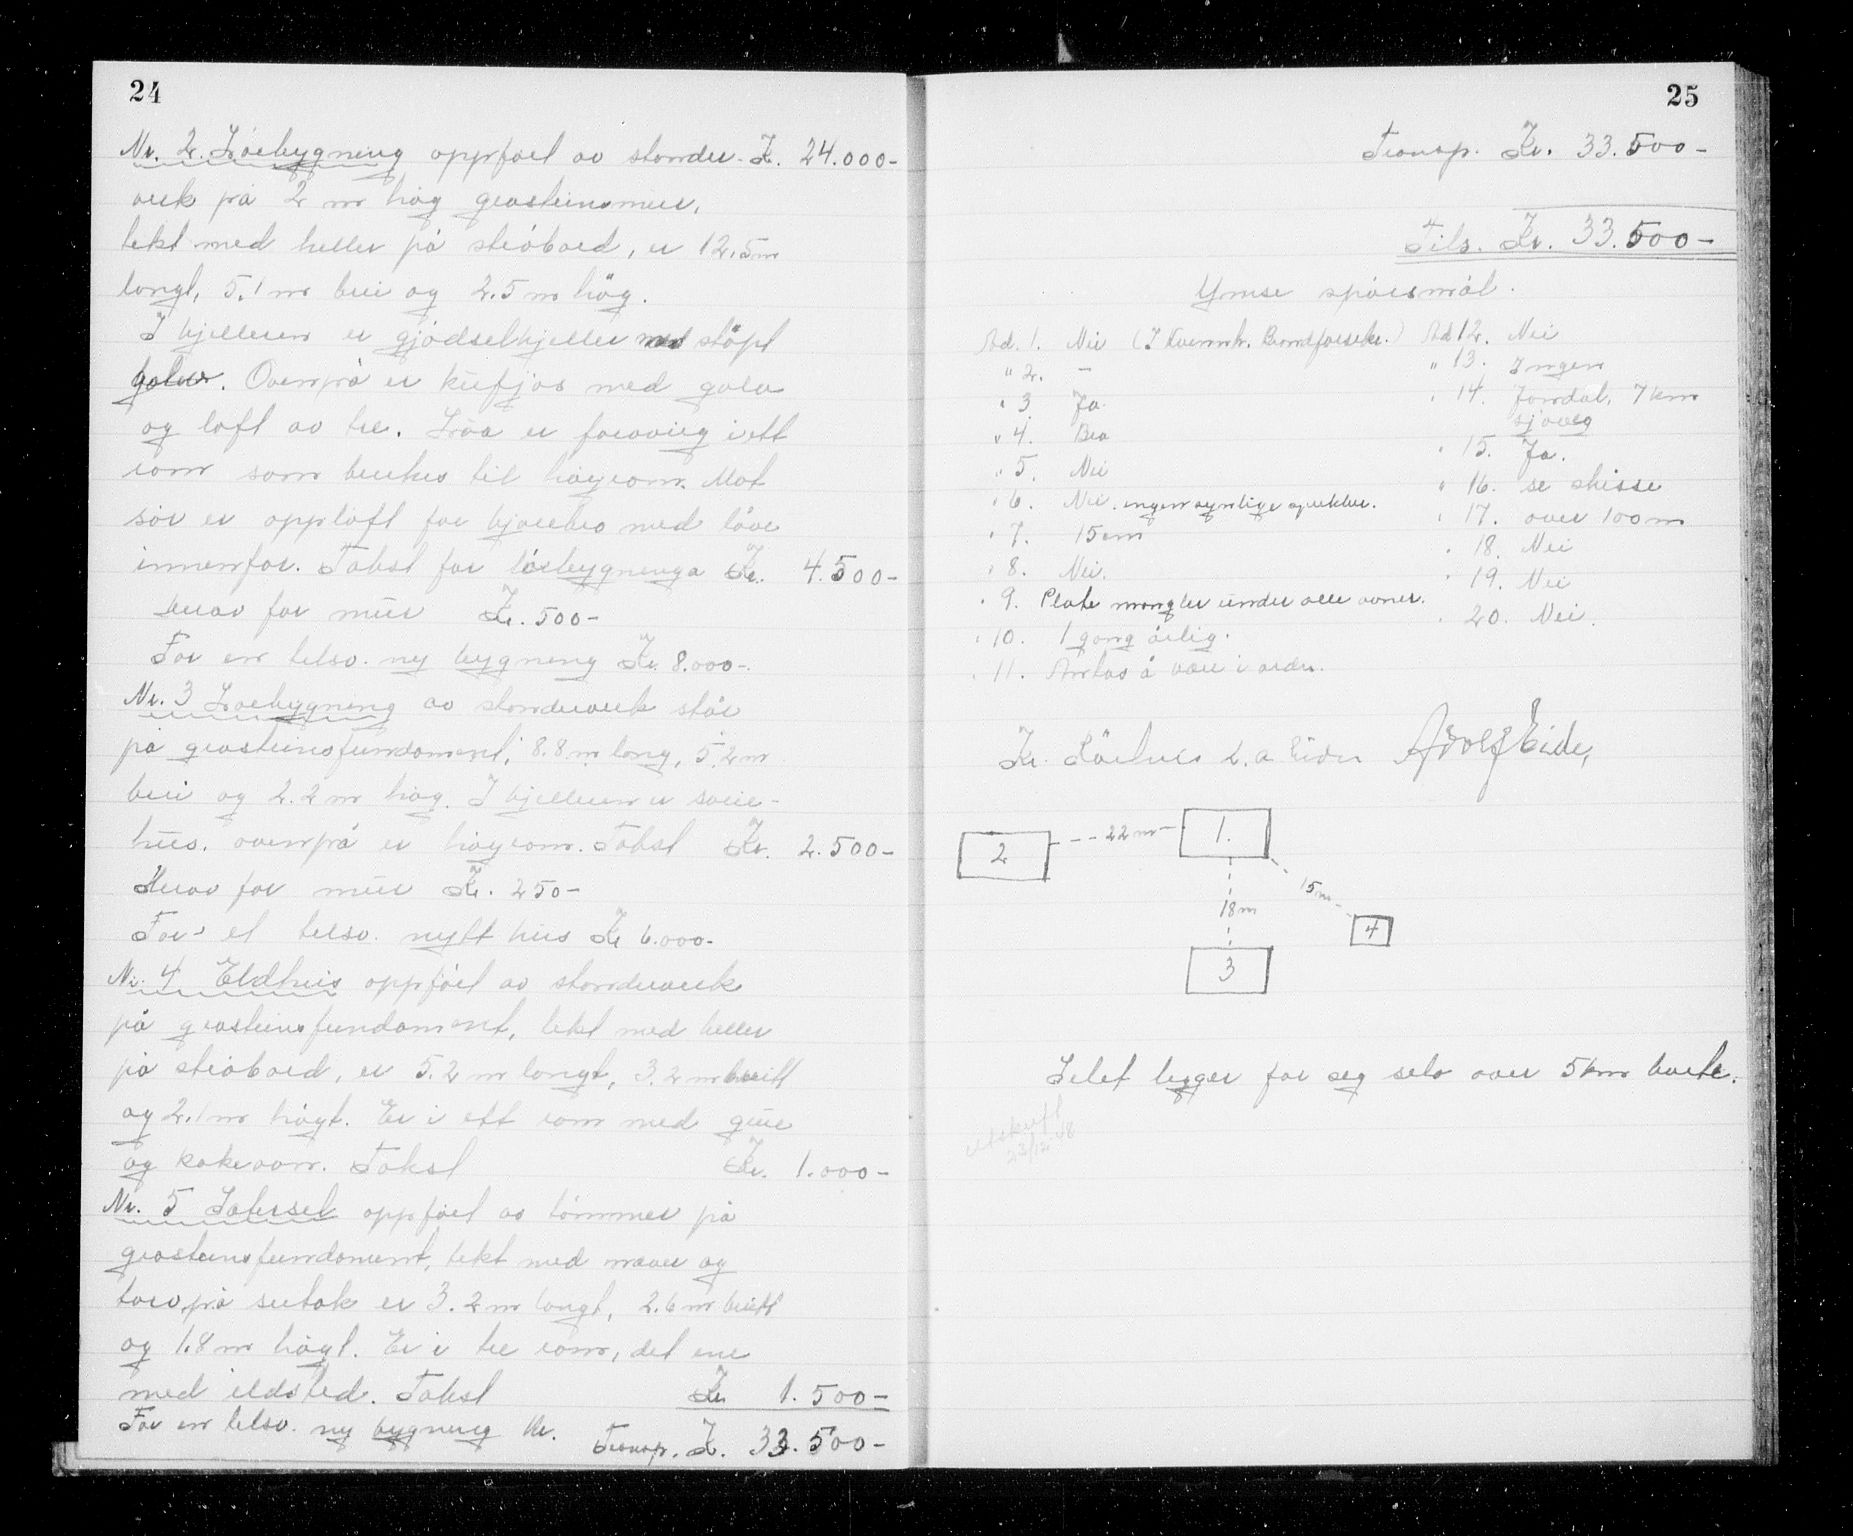 24
Nr. 2. Löebygning oppført av stender- Kr. 24.000-
verk på 2 m høg gråsteinsmur,
tekt med heller på stråbord, er 12.5 m
langt, 5.1 m brei og 2.5 m høg.
I kjelleren er gjødselkjeller med støpt
golv. Ovenpå er kufjøs med golv
og loft av tre. Löa er forøvrig i ett
rom som brukes til høyrom. Mot
sör er oppløft for kjørebro med löve
innenfor. Takst for löebygninga Kr. 4.500-
Herav for mur Kr. 500-
For en tilsv. ny bygning Kr. 8.000-.
Nr. 3 Löebygning av stenderverk står
på gråsteinsfundament, 8.8 m lang, 5.2 m
brei og 2.2 m høg. I kjelleren er saue-
hus. ovenpå er høyrom. Takst Kr. 2.500-
Herav for mur Kr. 250-
For et tilsv. nytt hus Kr 6.000-
Nr. 4 Eldhus oppført av stenderverk
på gråsteinsfundament, tekt med heller
på stråbord, er 5.2 m langt, 3.2 m breitt
og 2.1 m høgt. Er i ett rom med grue
og kakeovn. Takst Kr. 1.000-
Nr. 5 Sætersel oppført av tømmer på
gråsteinsfundament, tekt med never og
torv på sutak er 3.2 m langt, 2.6 m breitt
og 1.8 m høgt. Er i tre rom, det ene
med ildsted. Takst Kr 1.500-
For en tilsv. ny bygning Kr. Transp. Kr. 33.500-
25
Transp. Kr. 33.500-
Tils. Kr. 33.500-
Ymse spørsmål.
Ad. 1. Nei (I Kvernh. Brandforsikr.)
" 2. -
" 3 Ja.
" 4. Bra
" 5. Nei
" 6. Nei. ingen synlige sprekker.
" 7. 15 cm
" 8. Nei.
" 9. Plate mangler under alle ovner.
" 10. 1 gang årlig.
" 11. Antas å være i orden.
Ad 12. Nei
" 13. Ingen
" 14. Jondal, 7 km
sjøveg
" 15. Ja.
" 16. se skisse
" 17. over 100 m
" 18. Nei
" 19. Nei
" 20. Nei.
Kr. L. a. Eide Adolf Eide,
2 -- 22 m -- 1.
15 m
18 m
4
3
Selet ligger for seg selv over 5 km borte.
Utskrift
23/12.48